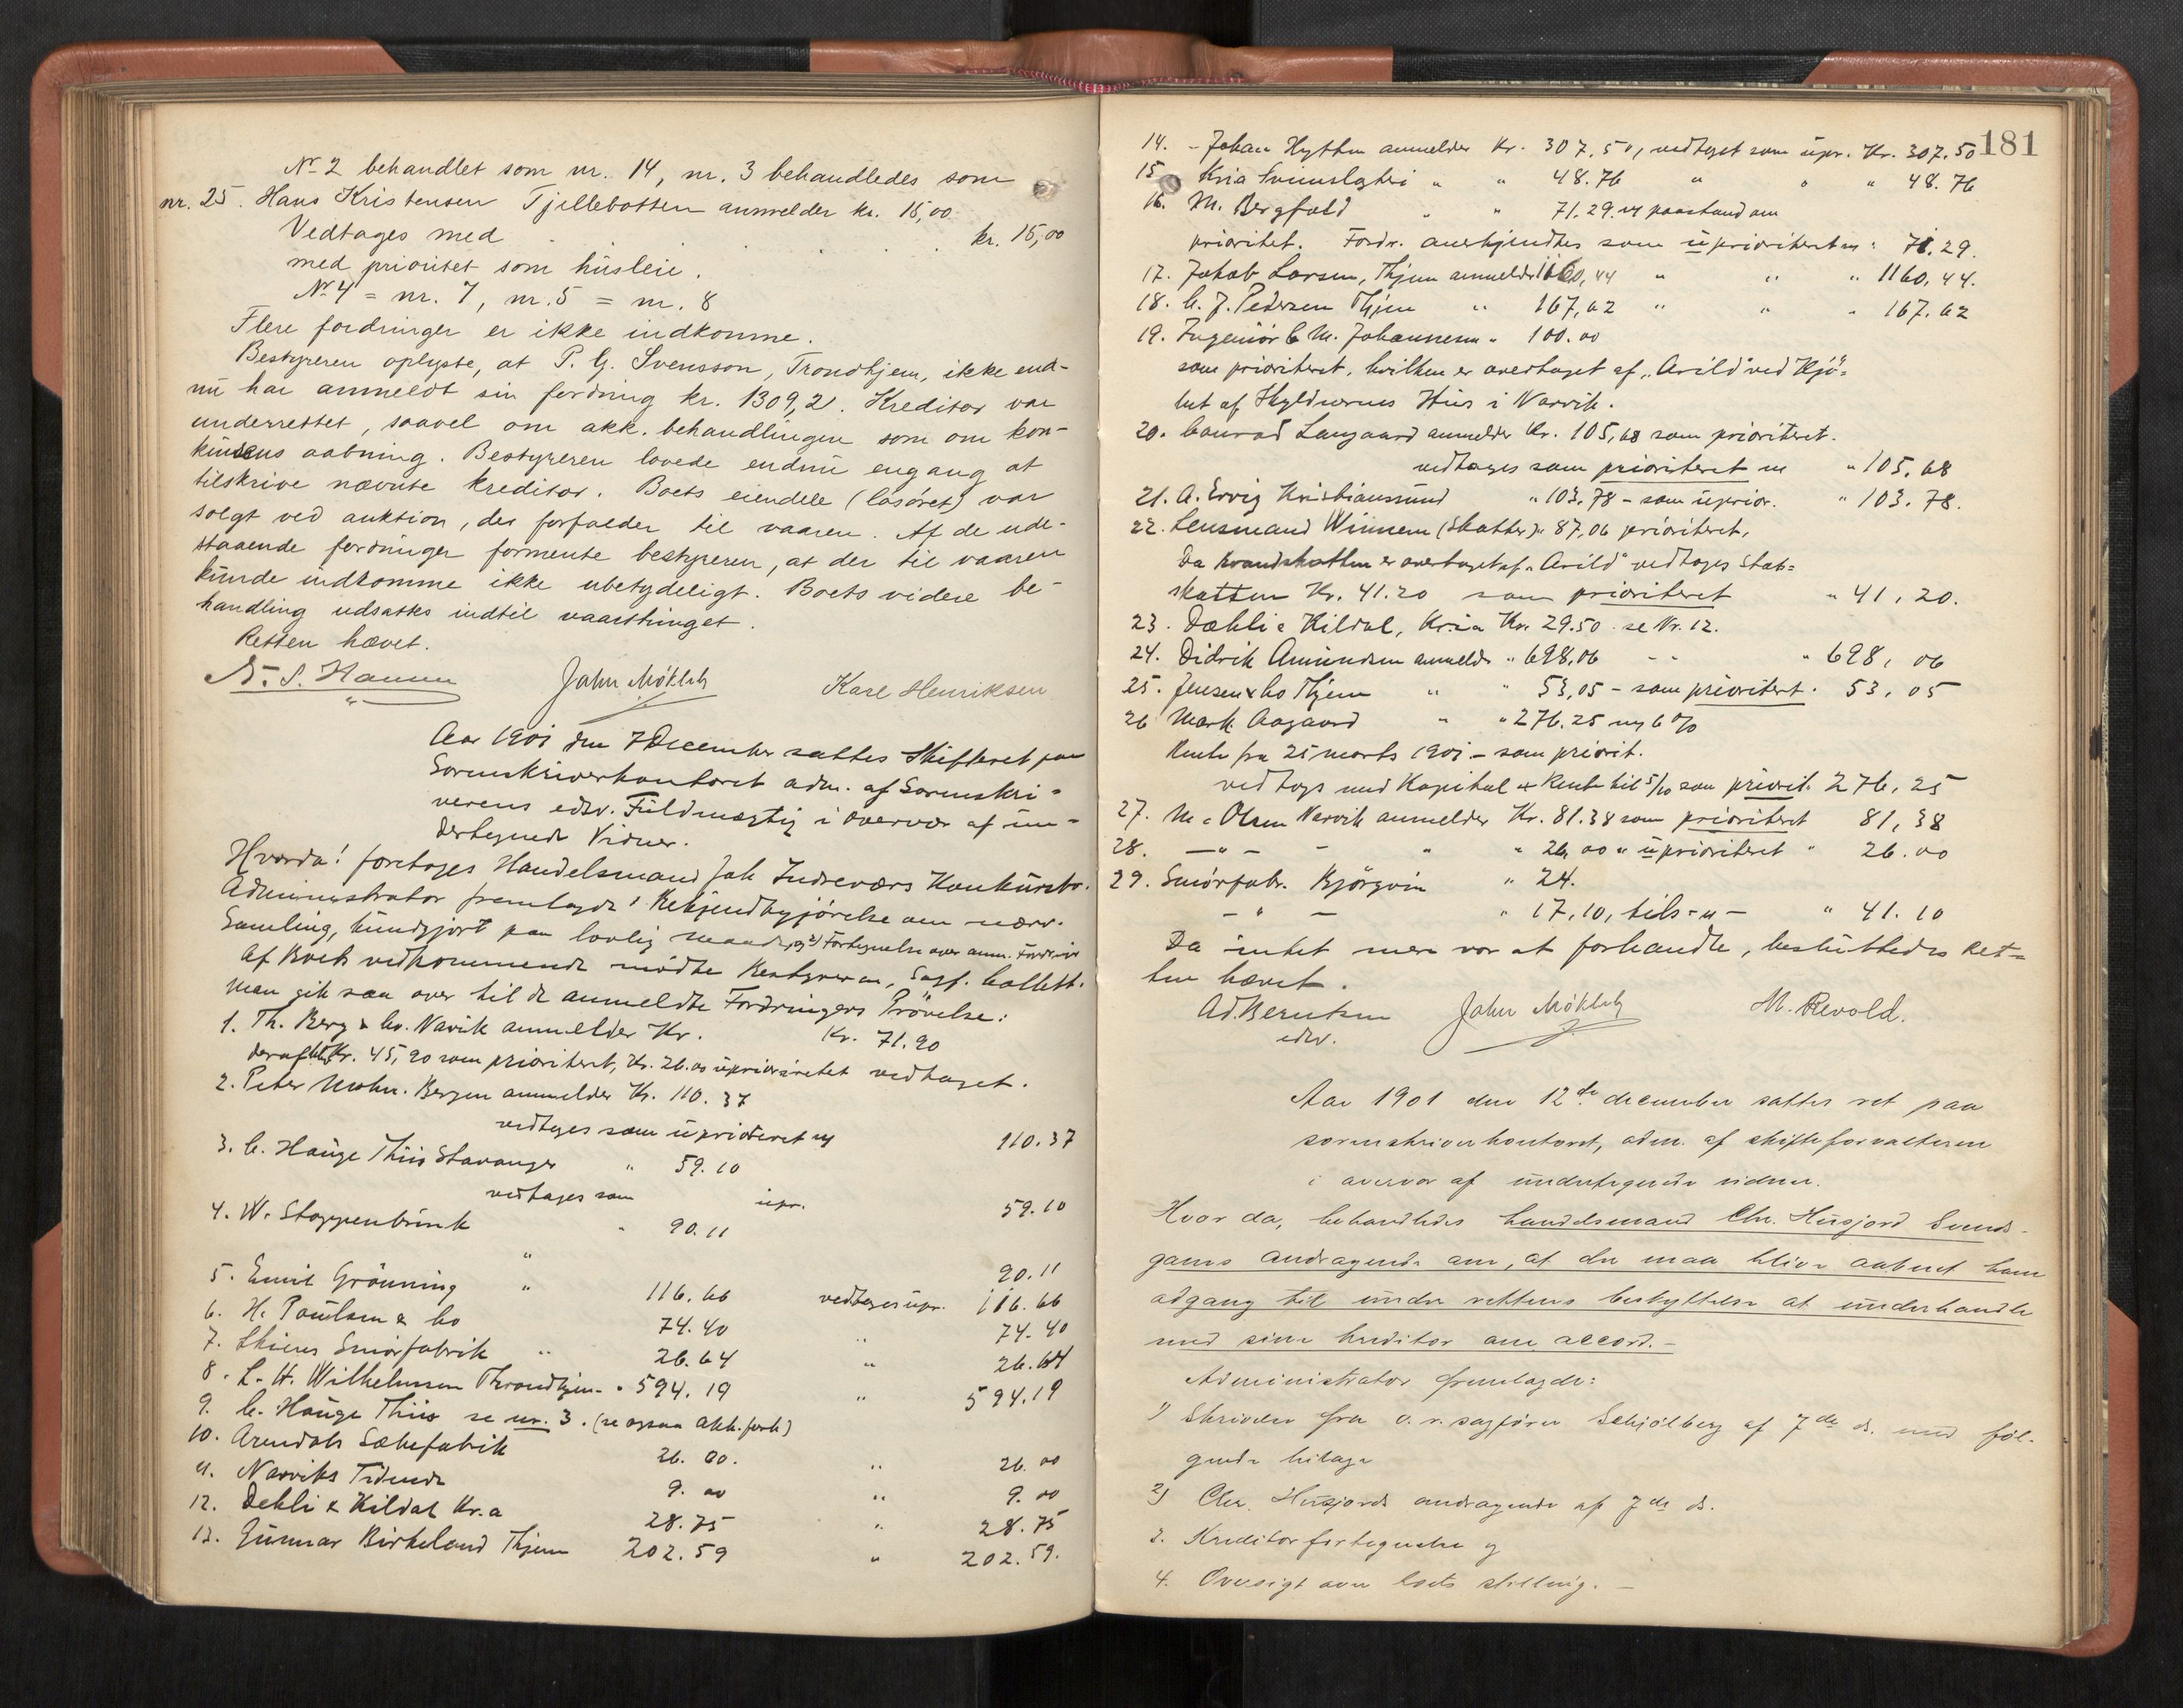 No 2 behandlet som nr. 14, nr. 3 behandledes som
nr. 25. Hans Kristensen Tjellebotten anmelder kr. 15,00
Vedtages med kr. 15,00
med prioritet som husleie.
No 4 = nr. 7, nr. 5 = nr. 8
Flere fordringer er ikke indkomne.
Bestyreren oplyste, at P. G. Svensson, Trondhjem, ikke end-
nu har anmeldt sin fordring kr. 1309,21. Kreditor var
underrettet, saavel om akk. behandlingen som om kon-
kursens aabning. Bestyreren lovede endnu engang at
tilskrive nævnte kreditor. Boets eiendele (løsøret) var
solgt ved auktion, der forfalder til vaaren. Af de ude-
staaende fordringer formente bestyreren, at der til vaaren
kunde indkomme ikke ubetydeligt. Boets videre be-
handling udsattes indtil vaartinget.
Retten hævet.
John Mökleby Karl Henriksen
Aar 1901 den 7 December sattes Skifteret paa
Sorenskriverkontoret adm. af Sorenskri-
verens edsv. Fuldmægtig i Overvær af un-
dertegnede Vidner.
Hvorda! foretoges Handelsmand Joh Indreværs Konkursbo.
Administrator fremlagde 1 Bekjendtgjørelse om nærv.
Samling, kundgjort paa lovlig Maade, og 2) Fortegnelse over anm. Fordringer
Af Boets vedkommende mødte Bestyreren, Sagf. Collett.
Man gik saa over til de anmeldte Fordringers Prøvelse:
1. Th. Berg & Co. Narvik anmelder Kr. Kr. 71.90
deraf Kr. 45,90 som prioriteret, Kr. 26.00 uprioriteret vedtaget.
2. Peter Mohn. Bergen anmelder Kr. 110.37
vedtages som uprioriteret m 110.37
3. C. Hauge Thiis Stavanger " 59.10
vedtages som upr. 59.10
4. W. Stoppenbrink " 90.11
" 90.11
5. Emil Grönning " 116.66 vedtages upr. 116.66
6. H. Poulsen & Co 74.40 " 74.40
7. Skiens Smørfabrik " 26.64 " 26.64
8. L. H. Wilhelmsen Throndhjem " 594.19 " 594.19
9. C. Hauge Thiis se nr. 3. (se ogsaa akk. forh)
10. Arendals Sækefabrik 26.00. " 26.00
11. Narviks Tidende 9.00 " 9.00
12. Dehli & Kildal Kr.a 28.75 " 28.75
13. Gunnar Birkeland Thjem 202.59 " 202.59.
181
14. Johan Hytten anmelder Kr. 307.50, vedtaget som upr. Kr. 307.50
15 Kria " " 48.76 " " " 48.76
16. M. Bergfald " " 71.29 m paastand om
prioritet. Fordr. anerkjendtes som uprioriteret m " 71.29.
17. Jakob Larsen, Thjem anmelder 1160,44 " " " 1160,44.
18. C. J. Pedersen Thjem " 167,62 " " " 167.62
19. Ingeniør C M. Johannesen " 100.00
som prioriteret, hvilken er overtaget af "Arild" ved Kjö-
bet af Skyldnerens Hus i Narvik.
20. Conrad Langaard anmelder Kr. 105,68 som prioriteret.
vedtages som prioriteret m " 105.68
21. A. Kristiansund " 103.78 - som uprior. " 103.78.
22. Lensmand Winnem (Skatter) " 87,06 prioriteret,
Da er overtaget af "Arild" vedtages Stats-
skatten Kr. 41.20 som prioriteret " 41,20.
23. Dæhli & Kildal, Kria Kr. 29.50 se Nr. 12.
24. Didrik Amundsen anmelder " 698,06 - - " 698,06
25. Jensen & Co Thjem " " 53,05 - som prioritert. 53,05
26 Mark Aagaard " " 276.25 m 6 %
Rente fra 25 marts 1901 - som priorit.
vedtages med Kapital + Rente til 5/10 som priorit. 276,25
27. M. Olsen Narvik anmelder Kr. 81.38 som prioriteret 81,38
28. - " - - " " 26.00 " uprioriteret " 26.00
29. Smörfabr. Björgvin " 24.
- " - " 17,10, tils - u - " 41.10
Da intet mere var at forhandle, besluttedes Ret-
ten hævet.
Ad. Berntsen John Mökleby M. Revold.
edsv.
Aar 1901 den 12te december sattes ret paa
sorenskriverkontoret, adm. af skifteforvalteren
i overvær af undertegnede vidner.
Hvor da, behandledes handelsmand Chr. Husjord
andragende om, at der maa blive aabnet ham
adgang til under rettens beskyttelse at underhandle
med sine kreditor om accord.-
Administrator fremlagde:
1) Skrivelse fra o. r. sagfører Schjölberg af 7de ds. med föl-
gende bilage
2) Chr. Husjords andragende af 7de ds.
3. Kreditorfortegnelse og
4. Oversigt over boets stilling. -